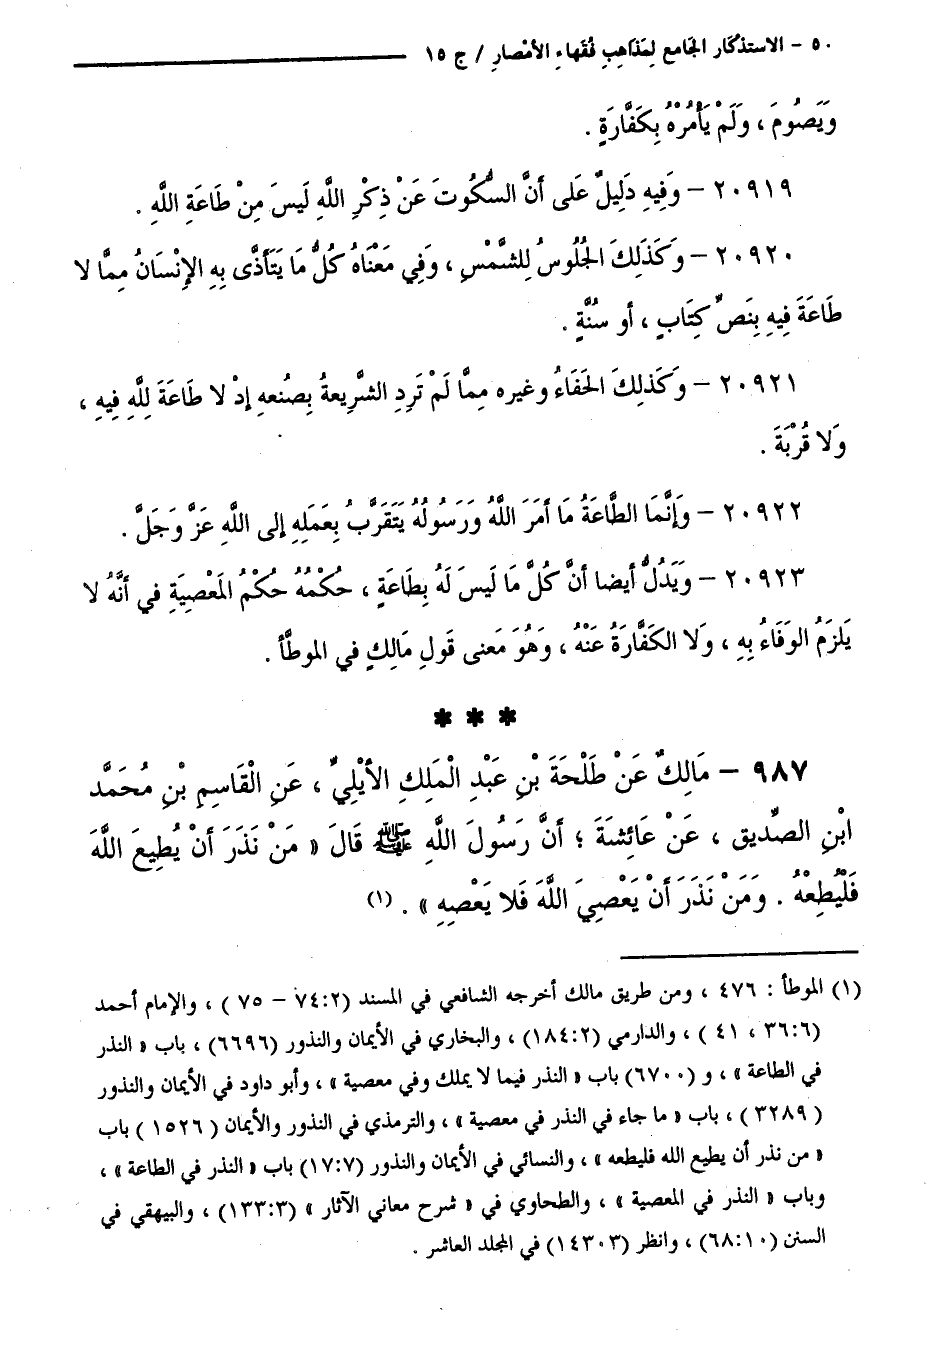 ٥٠ - الاستذكار الجامع لِمَذاهِبِ فُقَهاءِ الأمْصارِ / ج ١٥
وَيَصُومَ ، وَلَمْ يَأْمُرْهُ بِكَفَّارَةٍ .
٢٠٩١٩ – وَفِيهِ دَلِيلٌ عَلى أنَّ السُّكُوتَ عَنْ ذِكْرِ اللَّهِ لَيسَ مِنْ طَاعَةِ اللَّهِ .
٢٠٩٢٠ – وَكَذَلِكَ الجُلُوسُ لِلشَّمْسِ ، وَفِي مَعْنَاهُ كُلُّ مَا يَتَأَذَّى بِهِ الإِنْسَانُ مِمَّا لا
طَاعَةَ فِيهِ بِنَصِّ كِتَابٍ ، أو سُنَّةٍ .
٢٠٩٢١ – وَكَذلِكَ الحَفَاءُ وغيره مِمَّا لَمْ تَرِدِ الشَّرِيعةُ بِصُنعهِ إدْ لا طَاعَةَ لِلَّهِ فِيهِ ،
وَلا قُرْبَةَ .
٢٠٩٢٢ – وَإِنَّمَا الطَّاعَةُ مَا أمَرَ اللَّهُ وَرَسُولُهُ يَتَقَرَّبُ بِعَمَلِهِ إلى اللَّهِ عَزَّ وَجَلَّ .
٢٠٩٢٣ – وَيَدُلُّ أيضا أنَّ كُلَّ مَا لَيسَ لَهُ بِطَاعَةٍ ، حُكْمُهُ حُكْمُ المَعْصِيَةِ في أنَّهُ لا
يَلزَمُ الوَفَاءُ بِهِ ، وَلا الكَفَّارَةُ عَنْهُ ، وَهُوَ مَعنى قَولِ مَالِكٍ في الموطَّأ .
* * *
٩٨٧ – مَالِكٌ عَنْ طَلْحَةَ بْنِ عَبْدِ الْمَلِكِ الأَيْلِيِّ ، عَنِ الْقَاسِمِ بْنِ مُحَمَّد
ابْنِ الصِّدِّيق ، عَنْ عَائِشَةَ ؛ أنَّ رَسُولَ اللَّهِ ﷺ قَالَ « مَنْ نَذَرَ أنْ يُطِيعَ اللَّهَ
فَلْيُطِعْهُ . وَمَنْ نَذَرَ أنْ يَعْصِيَ اللَّهَ فَلا يَعْصِهِ » . (١)
(١) الموطأ : ٤٧٦ ، ومن طريق مالك أخرجه الشافعي في المسند (٧٤:٢ – ٧٥ ) ، والإمام أحمد
(٣٦:٦ ، ٤١ ) ، والدارمي (١٨٤:٢) ، والبخاري في الأيمان والنذور (٦٦٩٦) ، باب « النذر
في الطاعة » ، و (٦٧٠٠) باب « النذر فيما لا يملك وفي معصية » ، وأبو داود في الأيمان والنذور
( ٣٢٨٩ ) ، باب « ما جاء في النذر في معصية » ، والترمذي في النذور والأيمان ( ١٥٢٦ ) باب
« من نذر أن يطيع الله فليطعه » ، والنسائي في الأيمان والنذور (١٧:٧) باب « النذر في الطاعة » ،
وباب « النذر في المعصية » ، والطحاوي في « شرح معاني الآثار » (١٣٣:٣) ، والبيهقي في
السنن (٦٨:١٠) ، وانظر (١٤٣٠٣) في المجلد العاشر .